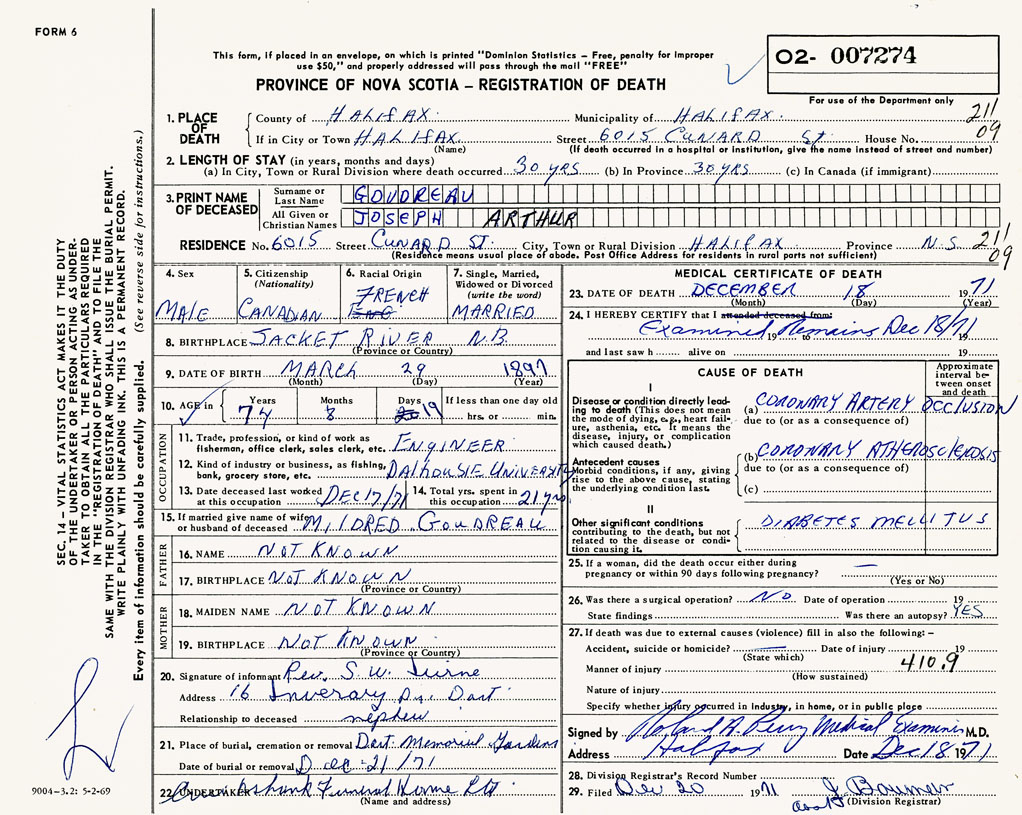 FORM 6
This form, if placed in an envelope, on which is printed "Dominion Statistics – Free, penalty for Improper
use $50," and properly addressed will pass through the mail "FREE"
O2- 007274
For use of the Department only
PROVINCE OF NOVA SCOTIA – REGISTRATION OF DEATH
1. PLACE OF DEATH
County of HALIFAX Municipality of HALIFAX 211
If in City or Town HALIFAX Street 6015 CUNARD St House No. 09
(Name) (If death occurred in a hospital or institution, give the name instead of street and number)
2. LENGTH OF STAY (in years, months and days)
(a) In City, Town or Rural Division where death occurred 30 yRS (b) In Province 30 yRS (c) In Canada (if immigrant)
3. PRINT NAME OF DECEASED
Surname or Last Name GOUDREAU
All Given or Christian Names JOSEPH ARTHUR
RESIDENCE No. 6015 Street CUNARD ST. City, Town or Rural Division HALIFAX Province N.S 211
(Residence means usual place of abode. Post Office Address for residents in rural parts not sufficient) 09
4. Sex
MALE
5. Citizenship
(Nationality)
CANADIAN
6. Racial Origin
FRENCH
ENG
7. Single, Married,
Widowed or Divorced
(write the word)
MARRIED
8. BIRTHPLACE JACKET RIVER N.B.
(Province or Country)
9. DATE OF BIRTH MARCH 29 1897
(Month) (Day) (Year)
10. AGE in
Years Months Days If less than one day old
74 8 20 19 hrs. or min.
OCCUPATION
11. Trade, profession, or kind of work as
fisherman, office clerk, sales clerk, etc. ENGINEER
12. Kind of industry or business, as fishing,
bank, grocery store, etc. DALHOUSIE UNIVERSITY
13. Date deceased last worked
at this occupation DEC 17/71
14. Total yrs. spent in
this occupation 21 yrs
15. If married give name of wife
or husband of deceased MILDRED GOUDREAU
FATHER
16. NAME NOT KNOWN
17. BIRTHPLACE NOT KNOWN
(Province or Country)
MOTHER
18. MAIDEN NAME NOT KNOWN
19. BIRTHPLACE NOT KNOWN
(Province or Country)
20. Signature of informant Rev. S. W.
Address 16 Inverary Dr. Dart.
Relationship to deceased nephew
21. Place of burial, cremation or removal Dart. Memorial Gardens
Date of burial or removal Dec 21/71
22. UNDERTAKER Funeral Home Ltd
(Name and address)
MEDICAL CERTIFICATE OF DEATH
23. DATE OF DEATH DECEMBER 18 1971
(Month) (Day) (Year)
24. I HEREBY CERTIFY that I attended deceased from:
Examined Remains Dec 18/71
19 to 19
and last saw h alive on 19
CAUSE OF DEATH
Approximate
interval be-
tween onset
and death
I
Disease or condition directly lead-
ing to death (This does not mean
the mode of dying, e.g., heart fail-
ure, asthenia, etc. It means the
disease, injury, or complication
which caused death.)
(a) CORONARY ARTERY OCCLUSION
due to (or as a consequence of)
Antecedent causes
Morbid conditions, if any, giving
rise to the above cause, stating
the underlying condition last.
(b) CORONARY ATHEROSCLEROSIS
due to (or as a consequence of)
(c)
II
Other significant conditions
contributing to the death, but not
related to the disease or condi-
tion causing it.
DIABETES MELLITUS
25. If a woman, did the death occur either during
pregnancy or within 90 days following pregnancy? —
(Yes or No)
26. Was there a surgical operation? NO Date of operation 19
State findings Was there an autopsy? YES
27. If death was due to external causes (violence) fill in also the following: –
Accident, suicide or homicide? — Date of injury 19
(State which)
Manner of injury 410.9
(How sustained)
Nature of injury
Specify whether injury occurred in Industry, in home, or in public place
Signed by Roland A. Perry Medical Examiner M.D.
Address Halifax Date Dec 18 1971
28. Division Registrar's Record Number
29. Filed Dec 20 1971
(Division Registrar)
SEC. 14 – VITAL STATISTICS ACT MAKES IT THE DUTY
OF THE UNDERTAKER OR PERSON ACTING AS UNDER-
TAKER TO OBTAIN ALL THE PARTICULARS REQUIRED
IN THE "REGISTRATION OF DEATH" AND TO FILE THE
SAME WITH THE DIVISION REGISTRAR WHO SHALL ISSUE THE BURIAL PERMIT.
WRITE PLAINLY WITH UNFADING INK. THIS IS A PERMANENT RECORD.
Every item of information should be carefully supplied. (See reverse side for instructions.)
9004-3.2: 5-2-69